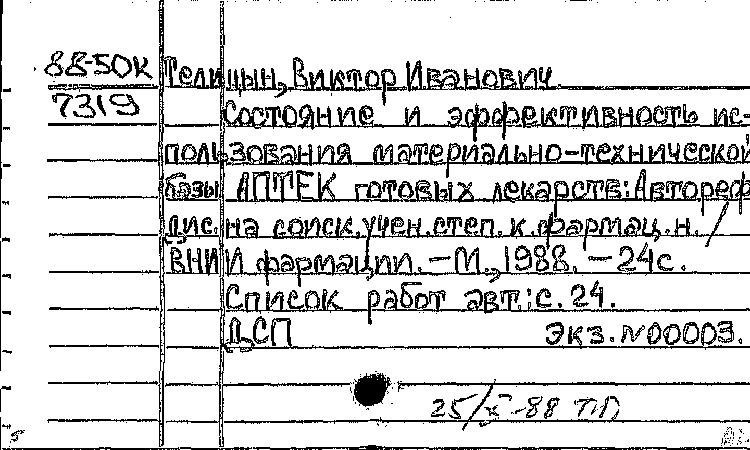 88-50К Телицын, Виктор Иванович
7319 Состояние и эффективность ис-
пользования материально-технической
базы АПТЕК готовых лекарств: Автореф
дис. на соиск. учен. степ. к. фармац. н. /
ВНИИ фармации. - М., 1988. - 24с.
Список работ авт.: с. 24.
ДСП экз. N00003.
25/X-88
5